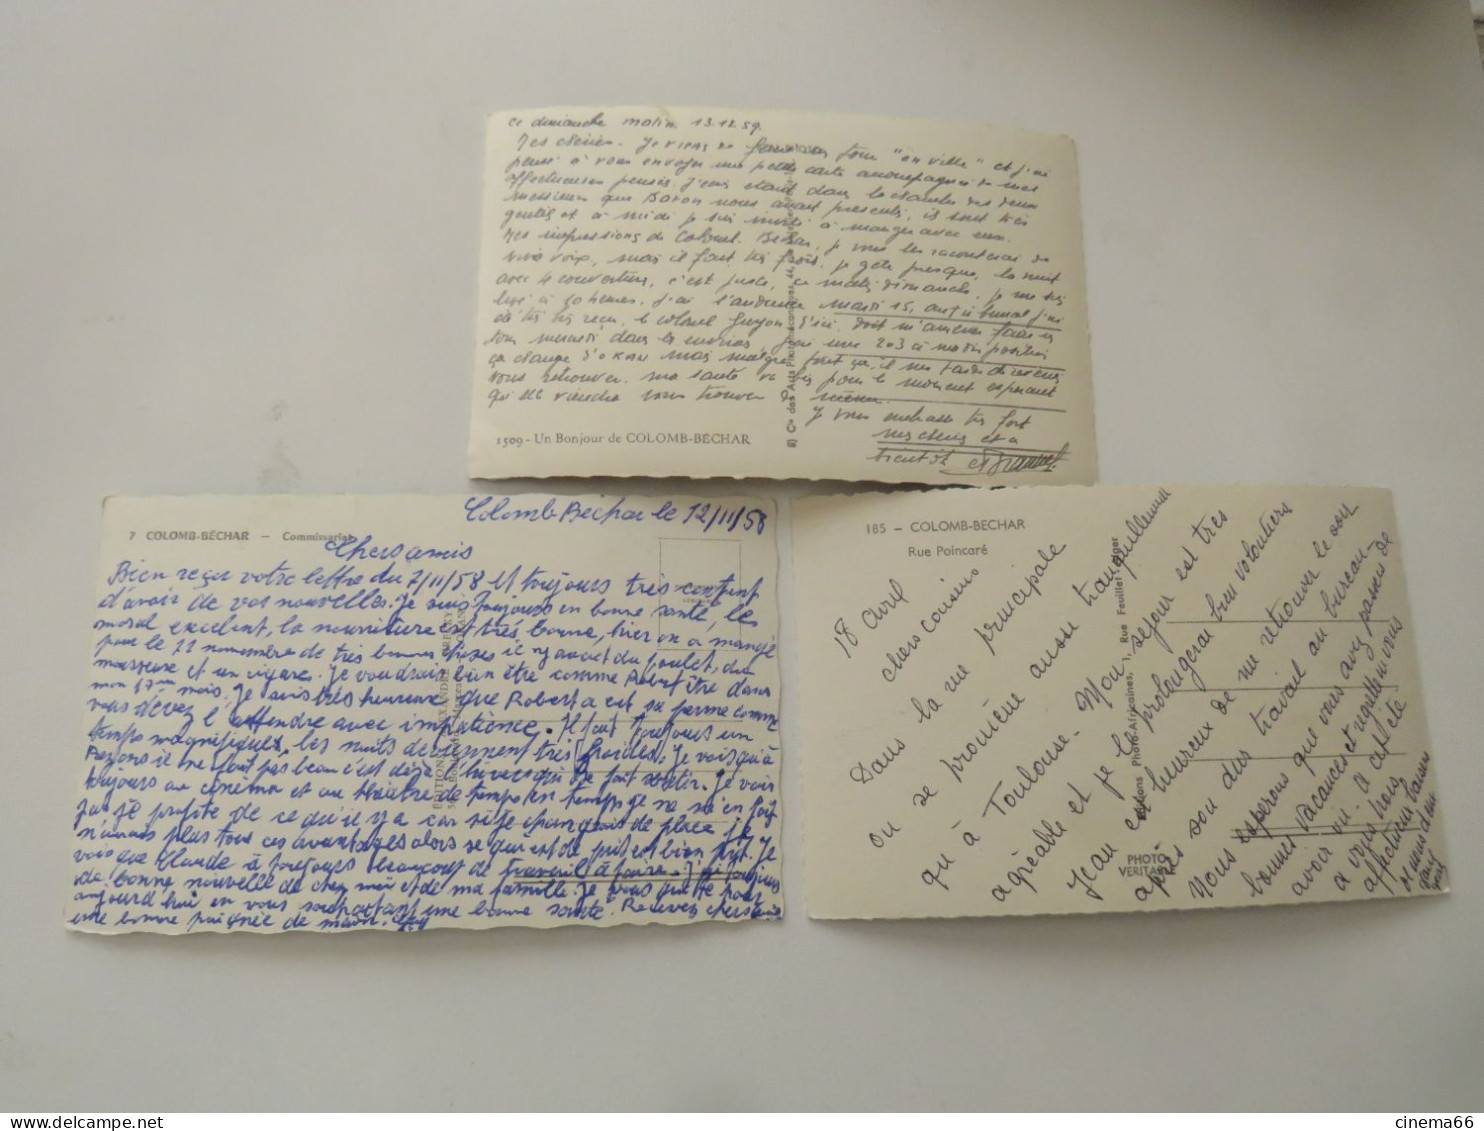 Ce dimanche matin 13.12.59.
Mes chéries. Je viens de faire un tour "en ville" et j'ai
pensé à vous envoyer une petite carte accompagnée de mes
affectueuses pensées. J'ai dans la chambre des deux
messieurs que nous avait présentés, ils sont très
gentils et à midi je suis invité à manger avec eux.
Mes impressions de Colomb-Béchar, je vous les raconterai de
vive voix, mais il fait très froid, je gèle presque, la nuit
avec 4 couvertures, c'est juste, ce matin dimanche, je me suis
levé à 10 heures. J'ai l'audience mardi 15, au tribunal j'ai
été très très reçu, le colonel doit m'amener faire un
tour dans les environs, j'ai une 203 à ma disposition
ça change mais malgré tout ça, il me tarde de revenir
vous retrouver. Ma santé va bien pour le moment espérant
qu'elle viendra vous trouver de même.
Je vous embrasse très fort
mes chéries et à
bientôt
1509 - Un Bonjour de COLOMB-BÉCHAR
Cie des Arts Photomécaniques
7 COLOMB-BÉCHAR — Commissariat
Colomb Béchar le 12/11/58
Chers amis
Bien reçu votre lettre du 7/11/58 et toujours très content
d'avoir de vos nouvelles. Je suis toujours en bonne santé, les
moral excelent, la nourriture est très bonne, hier on a mangé
pour le 11 novembre de très bonnes choses il ny avait du poulet, du
mousseux et un cigare. Je voudrais bien être comme Robert être dans
mon 17eme mois, Je suis très heureux que Robert a est sa perme comme
vous devez l'attendre avec impatience. Il fait toujours un
temps magnifiques, les nuits deviennent très froides, Je vois qu'à
Bezons il ne fait pas beau c'est déjà l'hiver qui se fait sentir. Je vais
toujours au cinéma et au théâtre de temps en temps je ne m'en fait
pas je profite de ce qu'il y a car si je changeais de place je
n'aurais plus tous ces avantages alors se qui est de pris est bien pris. Je
vois que Claude à toujours beaucoup de travail à faire. J'ai toujours
de bonne nouvelle de chez moi et de ma famille. Je vous quitte pour
aujourd'hui en vous souhaitant une bonne santé. Recevez chers amis
une bonne poignée de main. Guy
185 — COLOMB-BECHAR
Rue Poincaré
18 avril
Chers Cousins
Dans la rue principale
ou se promène aussi tranquillement
qu'à Toulouse. Mon séjour est très
agréable et je le prolongerai bien volontiers
Jean est heureux de me retrouver le soir
après son dur travail au bureau.
Nous espérons que vous avez passés de
bonnes vacances et vous
avoir vu à cet été
à vous nous
affectueux baisers
Editions Photo-Africaines, 1, Rue Feuillet, Alger
PHOTO
VERITABLE
cinema66